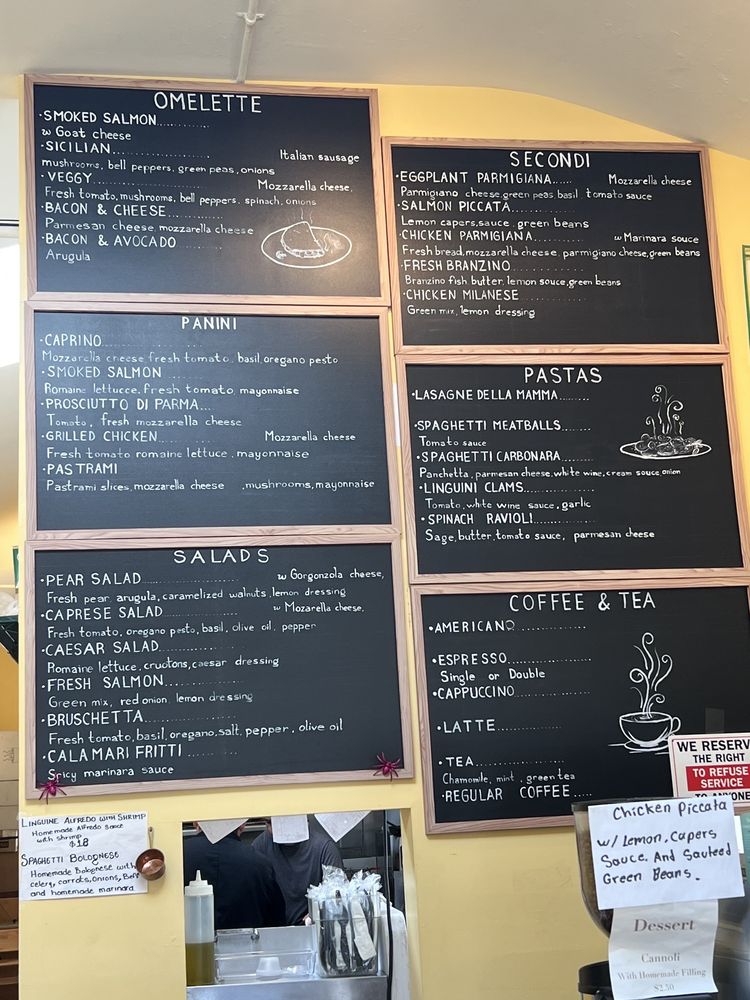 OMELETTE
·SMOKED SALMON..........
w Goat cheese
·SICILIAN.................... Italian sausage
mushrooms, bell peppers, green peas, onions
·VEGGY.................... Mozzarella cheese,
Fresh tomato, mushrooms, bell peppers, spinach, onions
·BACON & CHEESE................
Parmesan cheese, mozzarella cheese
·BACON & AVOCADO...............
Arugula
PANINI
·CAPRINO....................
Mozzarella cheese fresh tomato, basil, oregano pesto
·SMOKED SALMON..........
Romaine lettucce, fresh tomato, mayonnaise
·PROSCIUTTO DI PARMA....
Tomato, fresh mozzarella cheese
·GRILLED CHICKEN.............. Mozzarella cheese
Fresh tomato romaine lettuce, mayonnaise
·PASTRAMI
Pastrami slices, mozzarella cheese ,mushrooms, mayonnaise
SALADS
·PEAR SALAD.................... w Gorgonzola cheese,
Fresh pear, arugula, caramelized walnuts, lemon dressing
·CAPRESE SALAD................ w Mozarella cheese,
Fresh tomato, oregano pesto, basil, olive oil, pepper
·CAESAR SALAD................
Romaine lettuce, cruotons, caesar dressing
·FRESH SALMON................
Green mix, red onion, lemon dressing
·BRUSCHETTA................
Fresh tomato, basil, oregano, salt, pepper, olive oil
·CALAMARI FRITTI ..........
Spicy marinara sauce
SECONDI
·EGGPLANT PARMIGIANA...... Mozzarella cheese
Parmigiano cheese, green peas, basil, tomato sauce
·SALMON PICCATA................
Lemon capers, sauce, green beans
·CHICKEN PARMIGIANA.............. w Marinara sauce
Fresh bread, mozzarella cheese, parmigiano cheese, green beans
·FRESH BRANZINO................
Branzino fish butter, lemon sauce, green beans
·CHICKEN MILANESE ................
Green mix, lemon dressing
PASTAS
·LASAGNE DELLA MAMMA........
·SPAGHETTI MEATBALLS........
Tomato sauce
·SPAGHETTI CARBONARA........
Panchetta, parmesan cheese, white wine, cream sauce, onion
·LINGUINI CLAMS................
Tomato, white wine sauce, garlic
·SPINACH RAVIOLI..............
Sage, butter, tomato sauce, parmesan cheese
COFFEE & TEA
·AMERICANO................
·ESPRESSO....................
Single or Double
·CAPPUCCINO................
·LATTE....................
·TEA........................
Chamomile, mint, green tea
·REGULAR COFFEE.....
WE RESERVE
THE RIGHT
TO REFUSE
SERVICE
TO ANYONE
LINGUINE ALFREDO WITH SHRIMP
Homemade Alfredo sauce
with shrimp
$18
SPAGHETTI BOLOGNESE
Homemade Bolognese with
celery, carrots, onions, Beef
and homemade marinara
Chicken Piccata
w/ Lemon, Capers
Sauce. And Sauteed
Green Beans.
Dessert
Cannoli
With Homemade Filling
$2.50